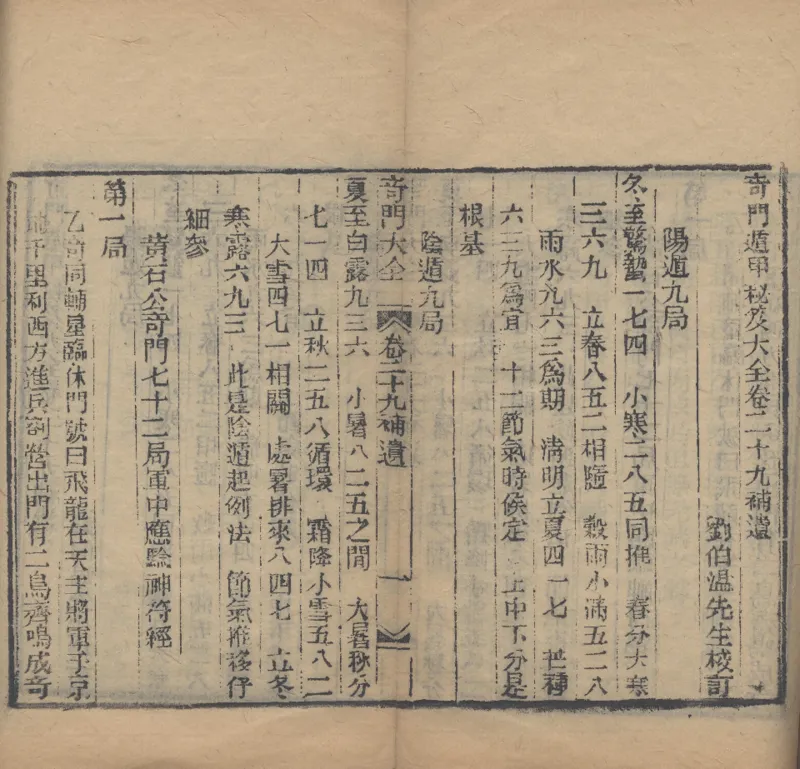 奇門遁甲秘笈大全卷二十九補遺
劉伯温先生校訂
陽遁九局
冬至驚蟄一七四 小寒二八五同推 春分大寒
三六九 立春八五二相隨 穀雨小滿五二八
雨水九六三爲期 清明立夏四一七 芒種
六三九爲宜 十二節氣時候定 上中下分是
根基
陰遁九局
奇門大全 卷二十九補遺 一
夏至白露九三六 小暑八二五之間 大暑秋分
七一四 立秋二五八循環 霜降小雪五八二
大雪四七一相關 處暑排來八四七 立冬
寒露六九三 此是陰遁起例法 節氣推移仔
細參
黃石公奇門七十二局軍中應驗神符經
第一局
乙奇同輔星臨休門號曰飛龍在天主將軍于京
千里利西方進兵劄營出門有二鳥齊鳴成奇